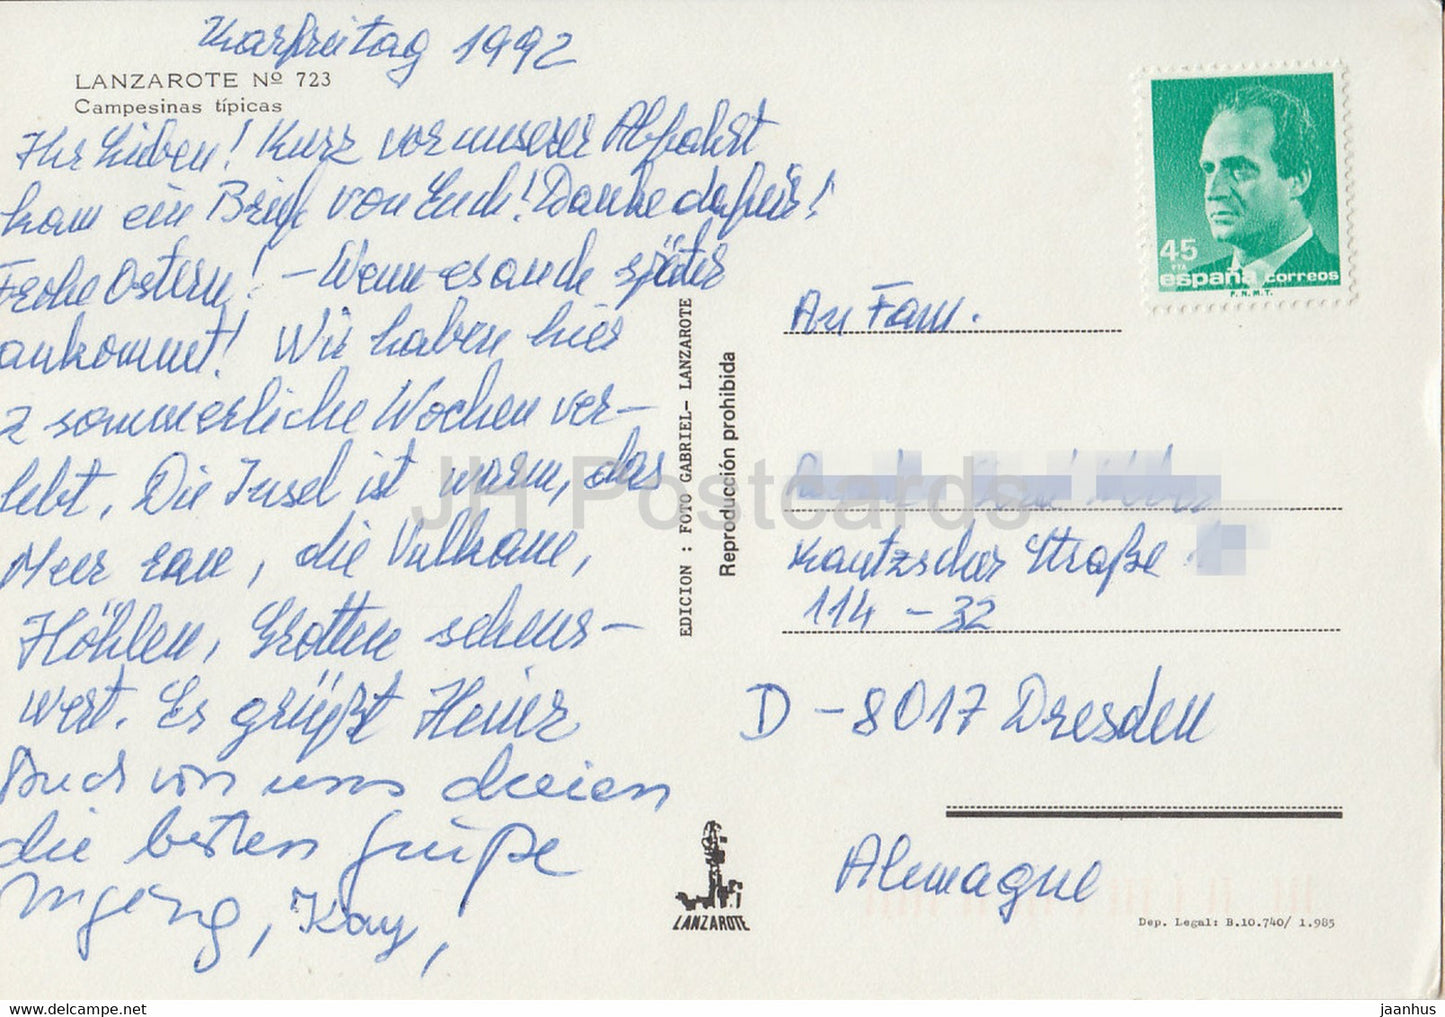 Karfreitag 1992
LANZAROTE Nº 723
Campesinas típicas
Ihr Lieben! Kurz vor unserer Abfahrt
kam ein Brief von Euch! Danke dafür!
Frohe Ostern! – Wenn es auch später
ankommt! Wir haben hier
2 sommerliche Wochen ver-
lebt. Die Insel ist warm, das
Meer rau, die Vulkane,
Höhlen, Grotten sehens-
wert. Es grüßt Heiner
Auch von uns dreien
die besten Grüße
Ingeng, Kay,
EDICION : FOTO GABRIEL- LANZAROTE
Reproducción prohibida
LANZAROTE
45
PTA
españa correos
F.N.M.T.
An Fam.
Kautzscher Straße
114 – 32
D – 8017 Dresden
Alemagne
Dep. Legal: B.10.740/ 1.985
JH Postcards
delcampe.net
jaanhus